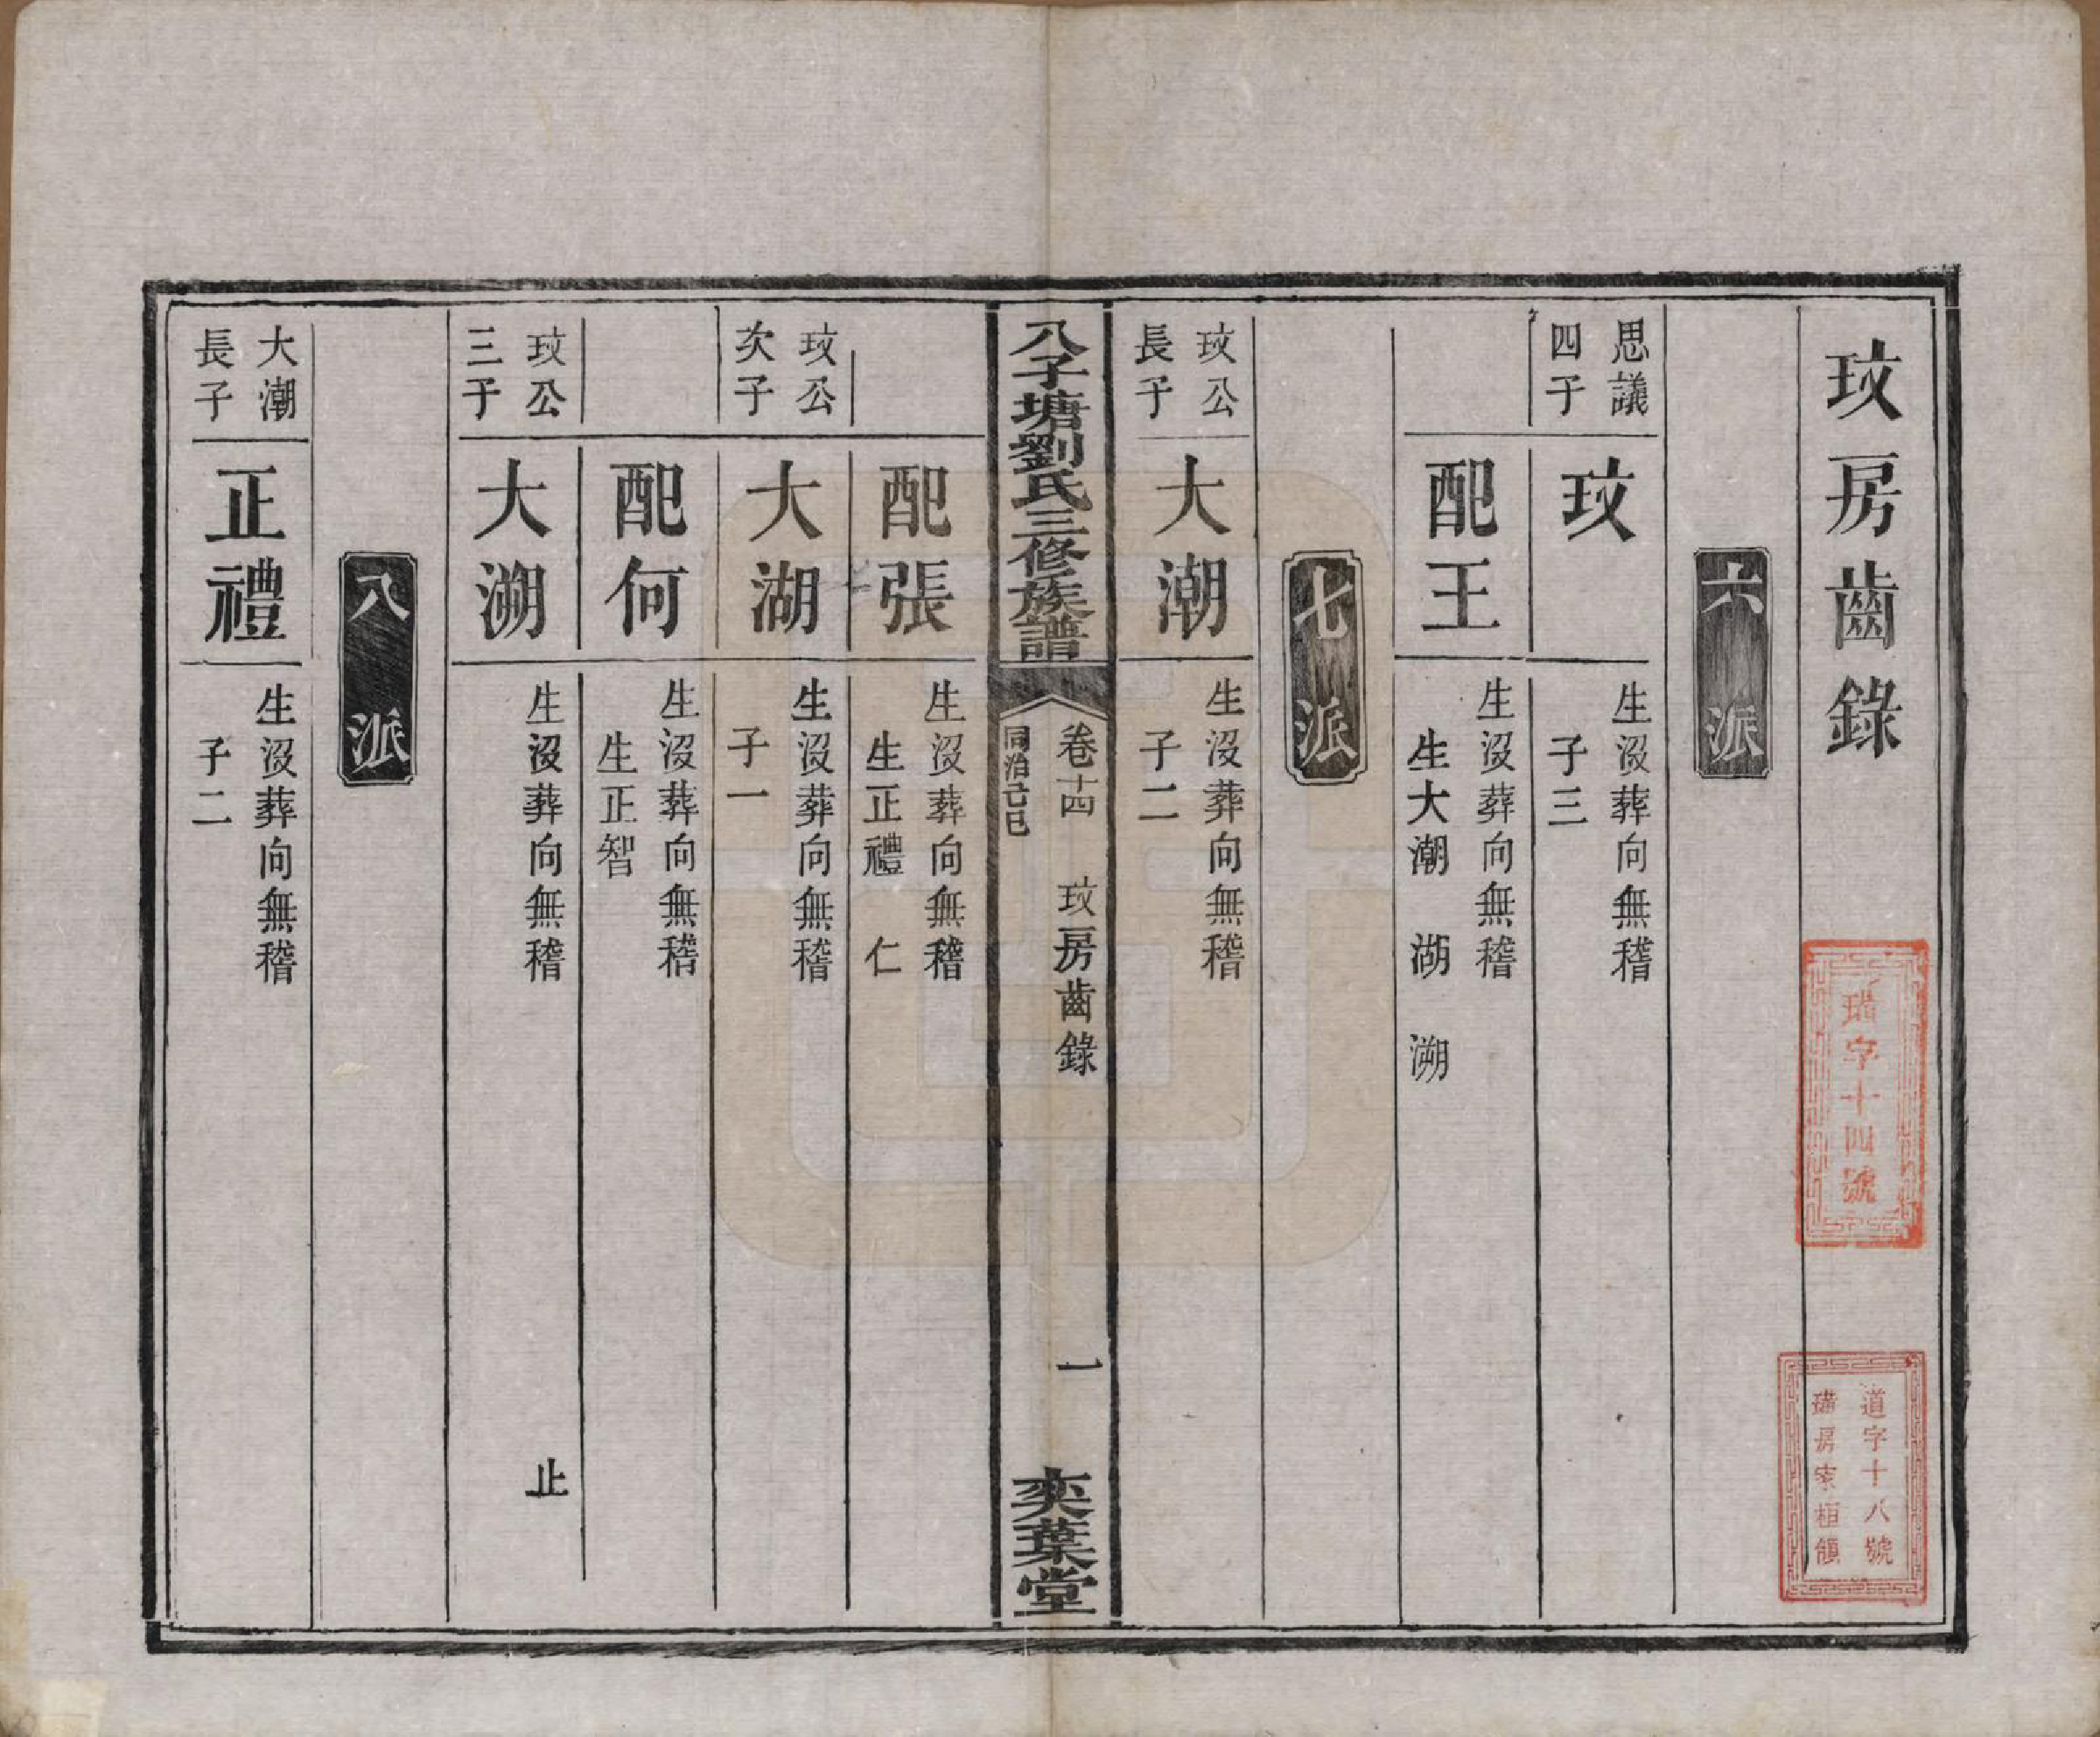 玟房齒錄
瑞字十四號
道字十八號
六派
思議
四子
玟
生沒葬向無稽
子三
配王
生沒葬向無稽
生大潮 湖 溯
七派
玟公
長子
大潮
生沒葬向無稽
子二
八子塘劉氏三修族譜
卷十四 玟房齒錄 一
同治己巳
奕葉堂
配張
生沒葬向無稽
生正禮 仁
玟公
次子
大湖
生沒葬向無稽
子一
配何
生沒葬向無稽
生正智
玟公
三子
大溯
生沒葬向無稽 止
八派
大潮
長子
正禮
生沒葬向無稽
子二